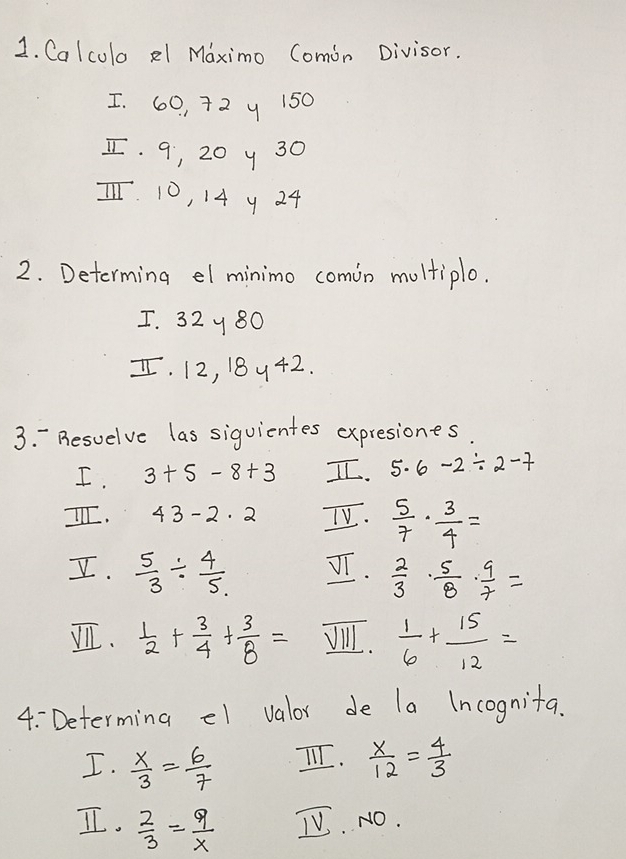 1. Calculo el Máximo Común Divisor.
I. 60, 72 y 150
II. 9, 20 y 30
III. 10, 14 y 24
2. Determina el minimo común multiplo.
I. 32 y 80
II. 12, 18 y 42.
3.- Resuelve las siguientes expresiones.
I. 3+5-8+3 II. 5·6-2÷2-7
III. 43-2·2 IV. 5/7 · 3/4 =
V. 5/3 ÷ 4/5. VI. 2/3 · 5/8 · 9/7 =
VII. 1/2 + 3/4 + 3/8 = VIII. 1/6 + 15/12 =
4.- Determina el valor de la Incognita.
I. x/3 = 6/7 III. x/12 = 4/3
II. 2/3 = 9/x IV. NO.